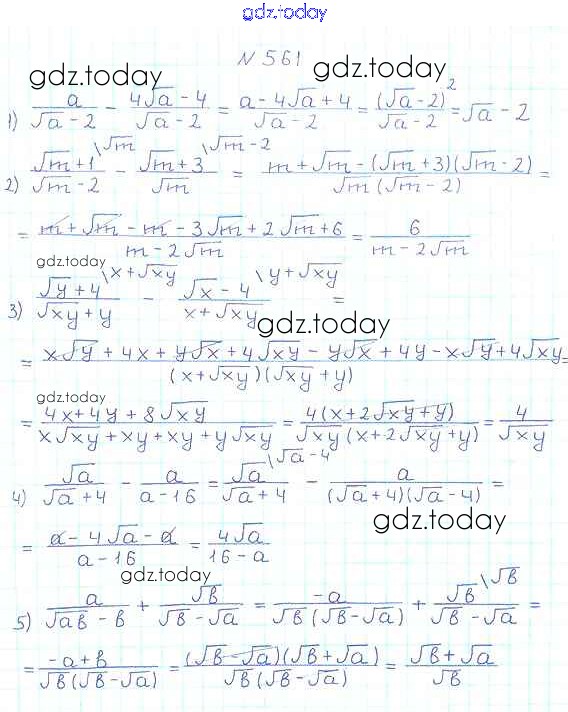 gdz.today
N 561
gdz.today gdz.today
1) a/(√a − 2) − (4√a − 4)/(√a − 2) = (a − 4√a + 4)/(√a − 2) = (√a − 2)²/(√a − 2) = √a − 2
2) (√m + 1)/(√m − 2) \√m − (√m + 3)/√m \√m − 2 = (m + √m − (√m + 3)(√m − 2))/(√m(√m − 2)) =
= (m + √m − m − 3√m + 2√m + 6)/(m − 2√m) = 6/(m − 2√m)
gdz.today
3) (√y + 4)/(√xy + y) \x + √xy − (√x − 4)/(x + √xy) \y + √xy =
gdz.today
= (x√y + 4x + y√x + 4√xy − y√x + 4y − x√y + 4√xy)/((x + √xy)(√xy + y)) =
gdz.today
= (4x + 4y + 8√xy)/(x√xy + xy + xy + y√xy) = 4(x + 2√xy + y)/(√xy(x + 2√xy + y)) = 4/√xy
4) √a/(√a + 4) − a/(a − 16) = √a/(√a + 4) \√a − 4 − a/((√a + 4)(√a − 4)) =
gdz.today
= (a − 4√a − a)/(a − 16) = 4√a/(16 − a)
gdz.today
5) a/(√ab − b) + √b/(√b − √a) = −a/(√b(√b − √a)) + √b/(√b − √a) \√b =
= (−a + b)/(√b(√b − √a)) = (√b − √a)(√b + √a)/(√b(√b − √a)) = (√b + √a)/√b